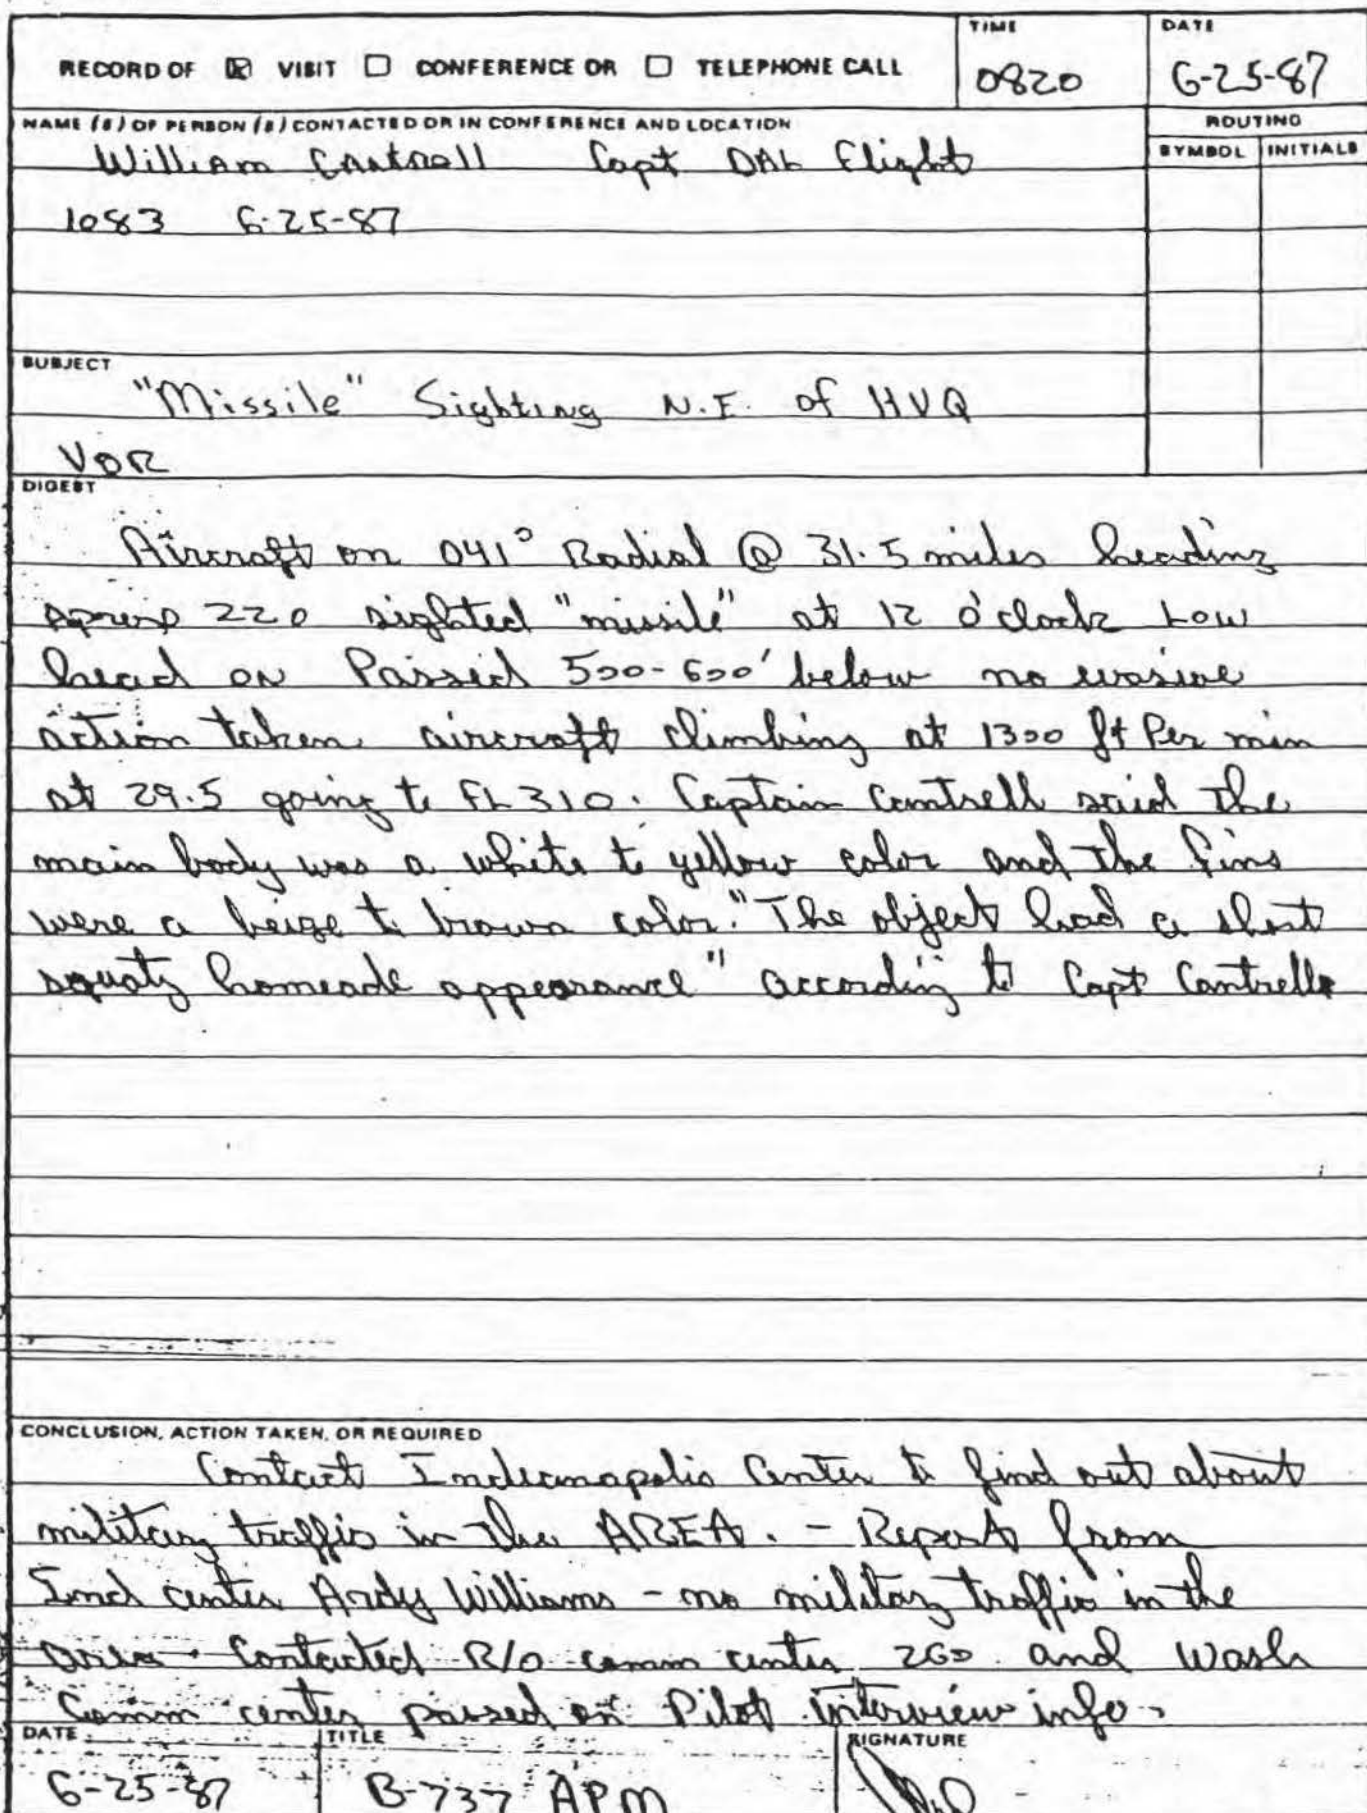 RECORD OF ☒ VISIT ☐ CONFERENCE OR ☐ TELEPHONE CALL
TIME
0820
DATE
6-25-87
NAME (S) OF PERSON (S) CONTACTED OR IN CONFERENCE AND LOCATION
ROUTING
SYMBOL INITIALS
William Cantrell Capt DAL Flight
1083 6-25-87
SUBJECT
"Missile" Sighting N.E. of HVQ
VOR
DIGEST
Aircraft on 041° Radial @ 31.5 miles heading
220 sighted "missile" at 12 o'clock Low
head on Passed 500-600' below no evasive
action taken. aircraft climbing at 1300 ft Per min
at 29.5 going to FL310. Captain Cantrell said the
main body was a white to yellow color and the fins
were a beige to brown color. "The object had a short
squaty homeade appearance" according to Capt Cantrell
CONCLUSION, ACTION TAKEN, OR REQUIRED
Contact Indianapolis Center to find out about
military traffic in the AREA. - Report from
Ind center Andy Williams - no military traffic in the
area. Contacted R/O comm center 260 and Wash
Comm center passed on Pilot interview info.
DATE
6-25-87
TITLE
B-737 APM
SIGNATURE